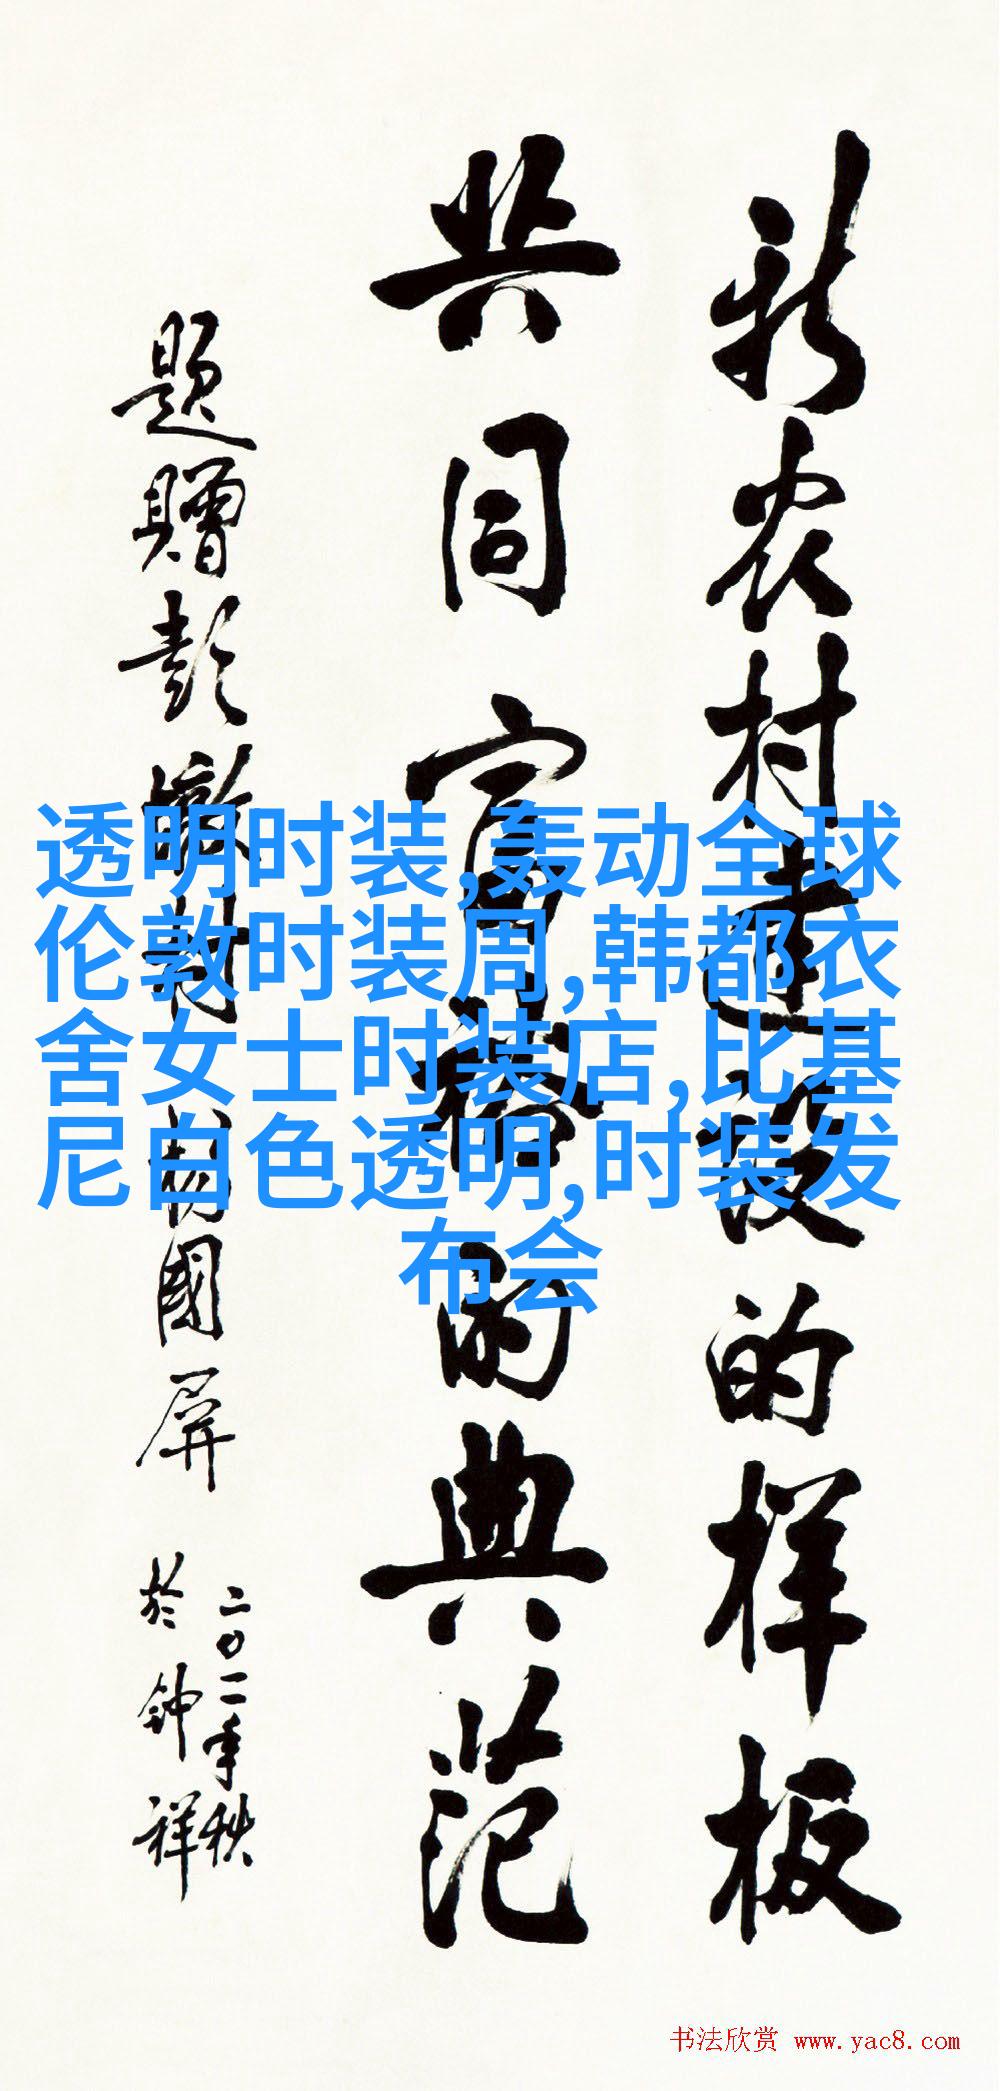 新农村建设的样板
共同富裕的典范
题赠彭墩村
杨国屏
二〇一一年秋
於钟祥
透明时装,轰动全球
伦敦时装周,韩都衣
舍女士时装店,比基
尼白色透明,时装发
布会
书法欣赏 www.yac8.com